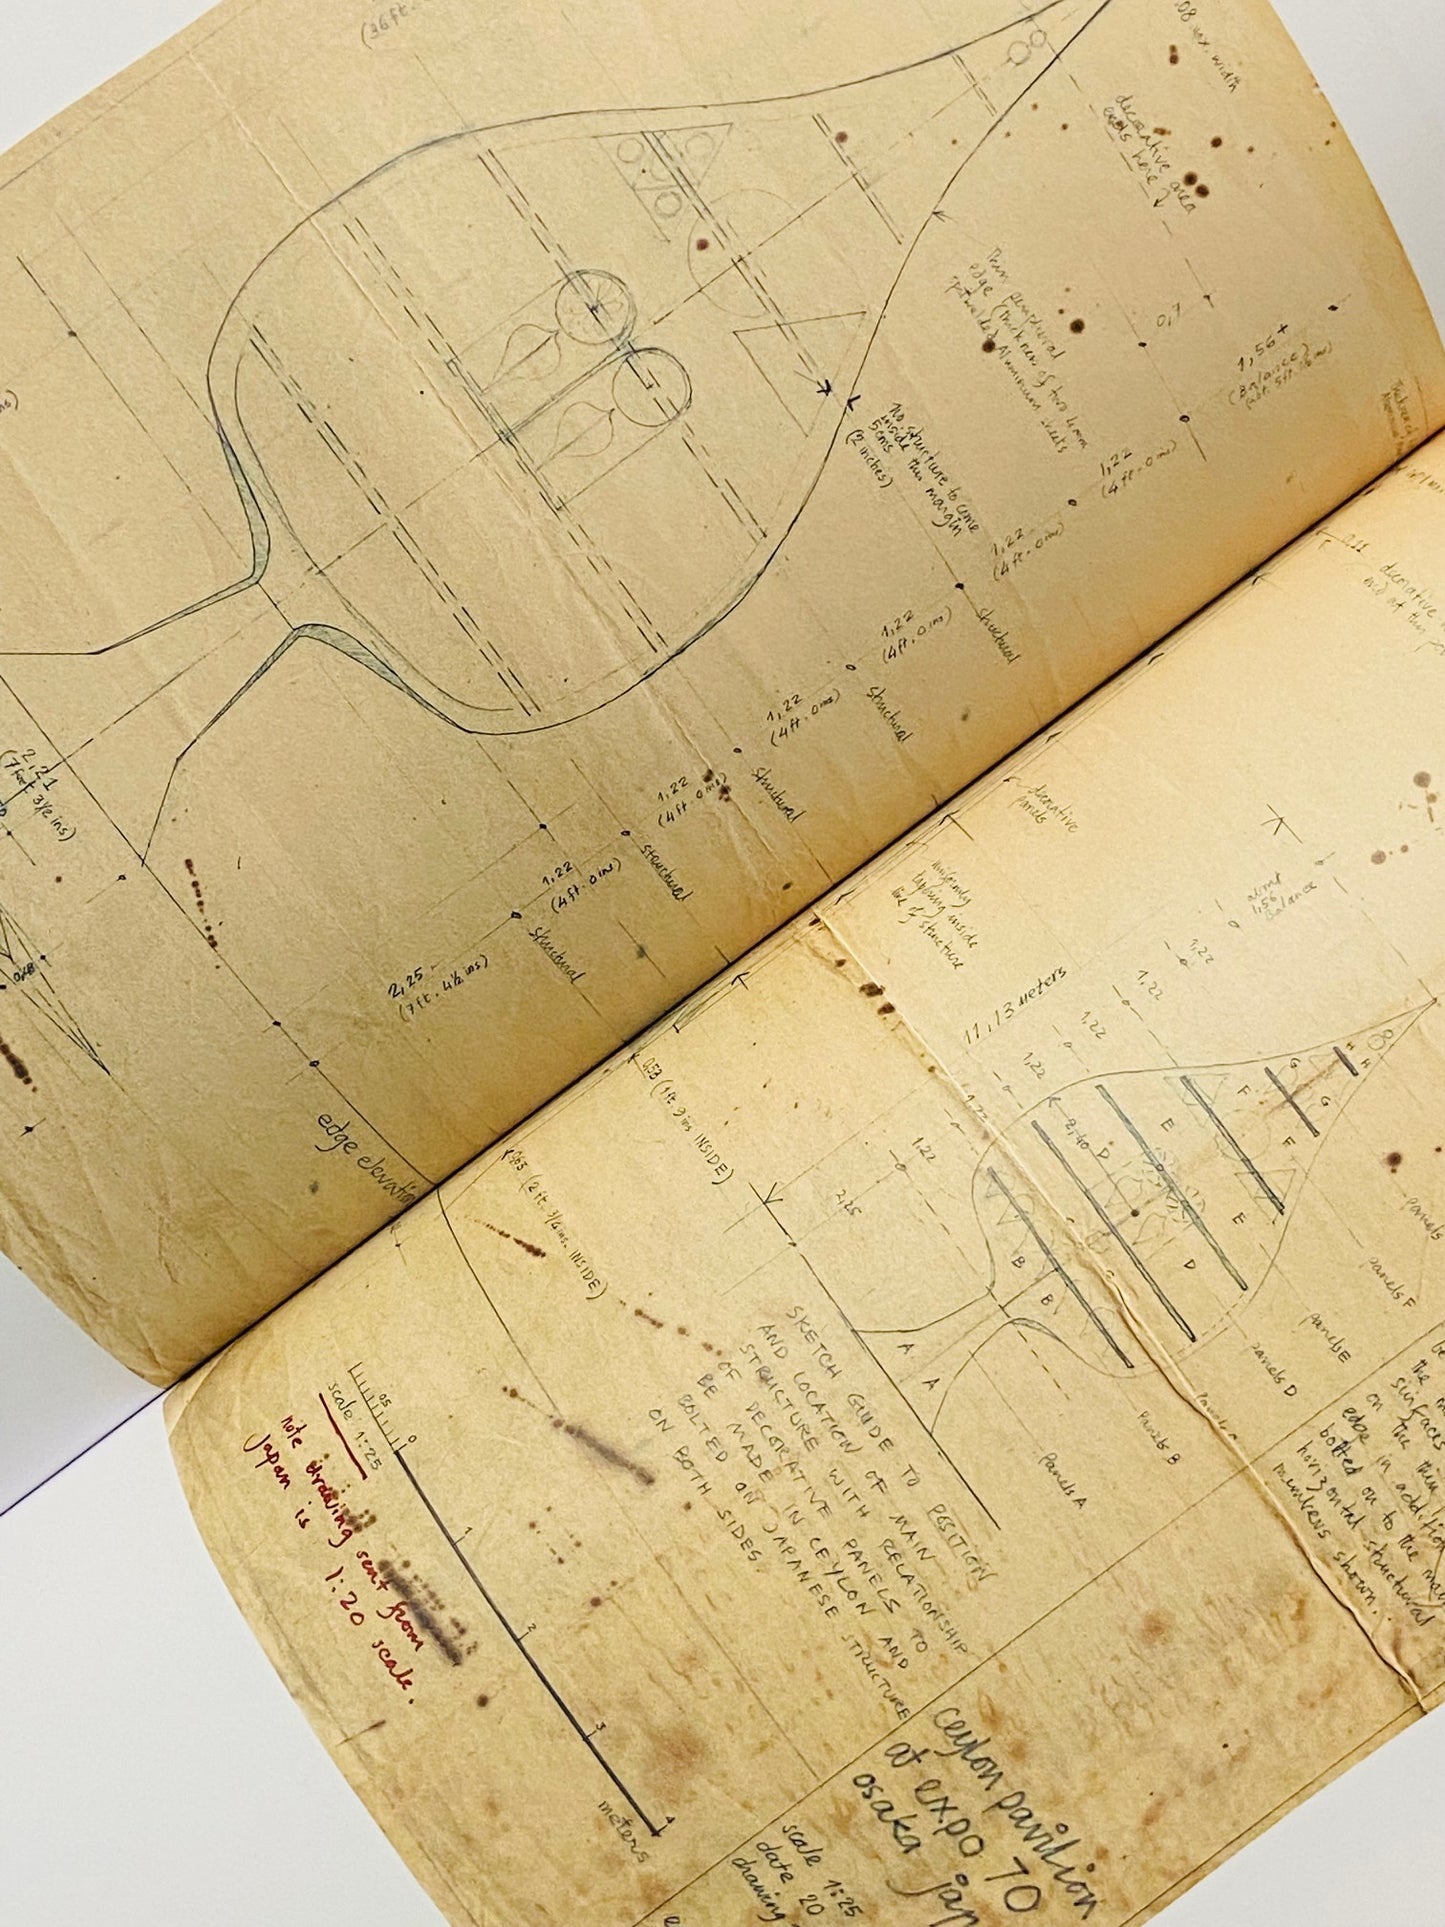 (36ft.
08 max. width
decorative area
ends here
thin peripheral
edge (thickness of two 4mm
spotwelded Aluminium sheets
0,7
1,56 +
(Balance)
No structure to come
inside this margin
5cms
(2 inches)
1,22
(4ft. 0ins)
1,22
(4ft. 0ins)
structural
1,22
(4ft. 0ins)
structural
1,22
(4ft. 0ins)
structural
1,22
(4ft. 0ins)
structural
1,22
(4ft. 0ins)
structural
2,25
(7ft. 4½ ins)
2,21
(7 feet 3½ ins)
edge elevation
decorative
decorative
panels
uniformly
tapering inside
line of structure
about
1,56
balance
11,13 meters
1,22
1,22
1,22
1,22
1,22
1,22
2,25
2,40
0,53 (1 ft. 9 ins INSIDE)
0,63 (2 ft. 3/4 ins. INSIDE)
H
H
G
G
F
F
E
E
D
D
B
B
A
A
panels
panels F
panels E
panels D
Panels B
Panels A
SKETCH GUIDE TO POSITION
AND LOCATION OF MAIN
STRUCTURE WITH RELATIONSHIP
OF DECORATIVE PANELS TO
BE MADE IN CEYLON AND
BOLTED ON JAPANESE STRUCTURE
ON BOTH SIDES.
be
the
surfaces
on the thin
edge in addition
bolted on to the main
horizontal structural
members shown.
0,5
0
1
2
3
4
meters
scale 1:25
note drawing sent from
Japan is 1:20 scale.
ceylon pavilion
at expo 70
osaka jap
scale 1:25
date 20
drawing